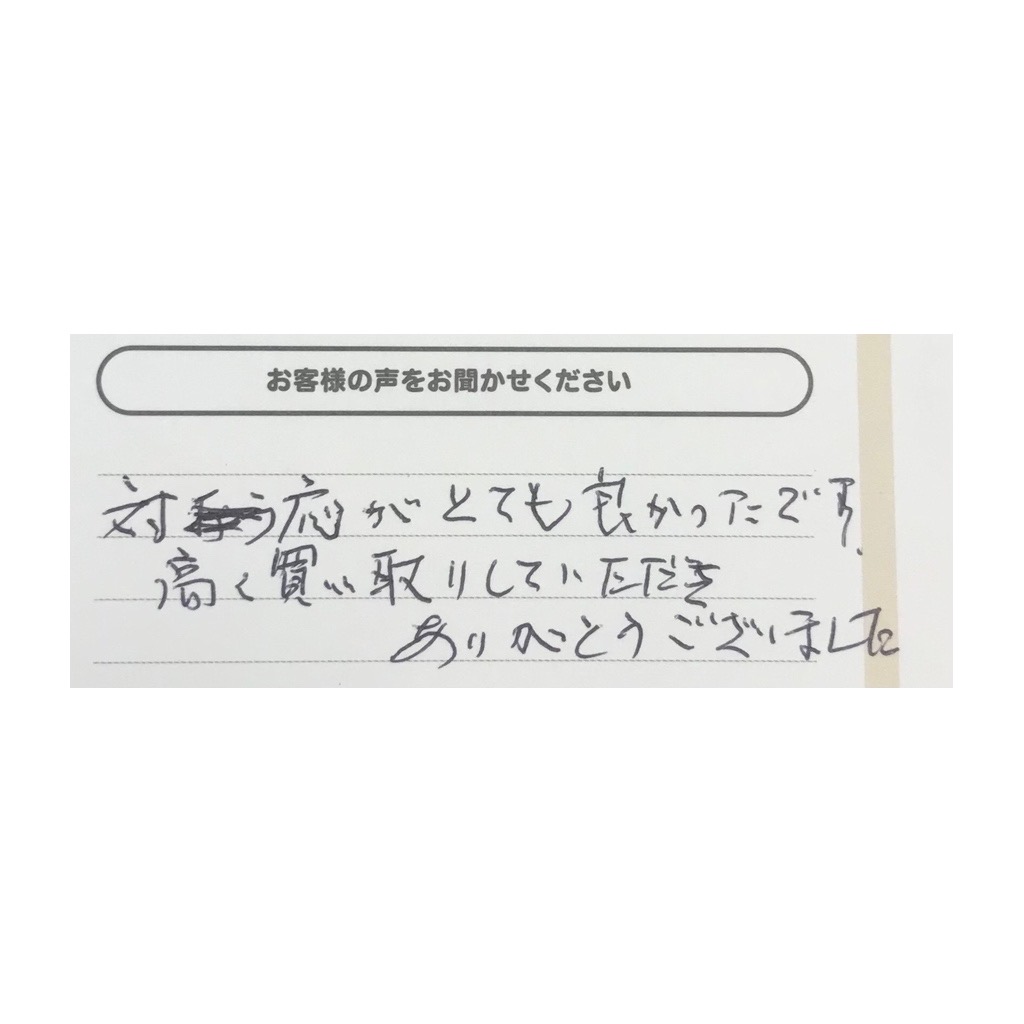 お客様の声をお聞かせください
対応がとても良かったです
高く買い取りしていただき
ありがとうございました